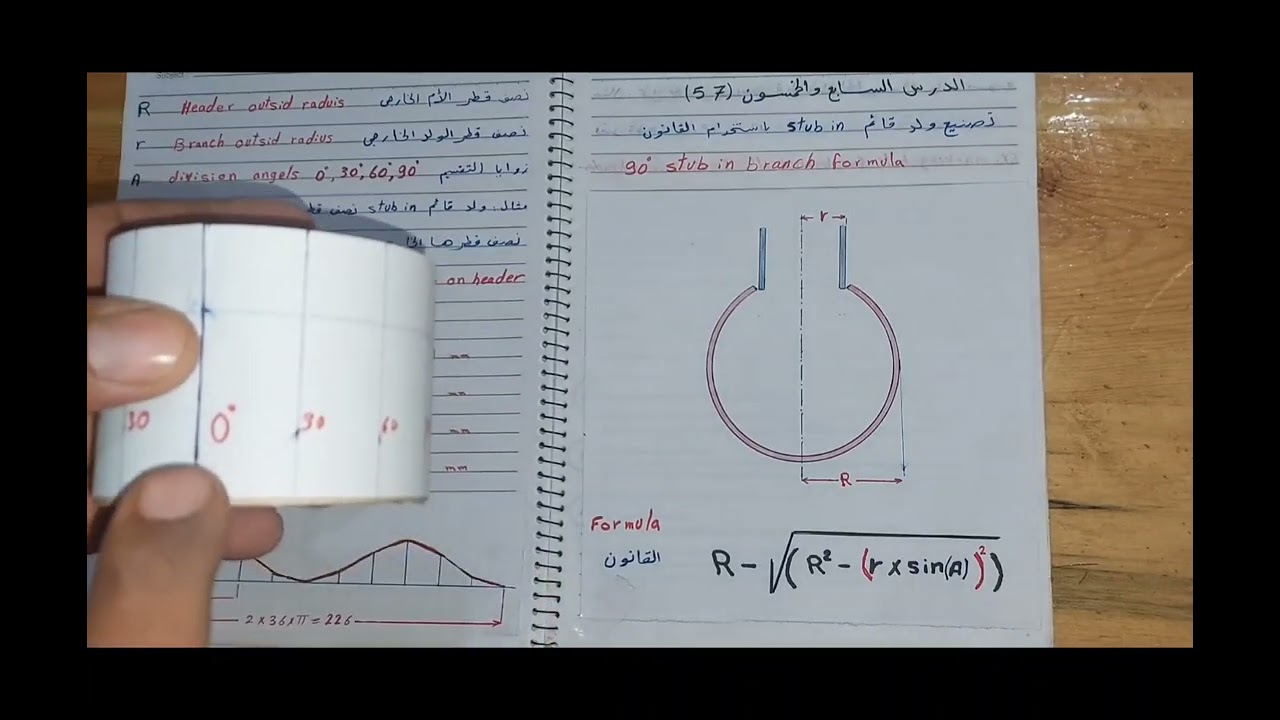 Subject:
R Header outsid raduis نصف قطر الأم الخارجي
r Branch outsid radius نصف قطر الولد الخارجي
A division angels 0°,30°,60°,90° زوايا التقسيم
مثال: ولد قائم stub in نصف
نصف قطرها
on header
mm
mm
mm
mm
30 0° 30 60
2 x 36 x π = 226
الدرس السابع والخمسون (57)
تصنيع ولد قائم stub in باستخدام القانون
90° stub in branch formula
r
R
Formula
القانون
R - √(R² - (r x sin(A))²)